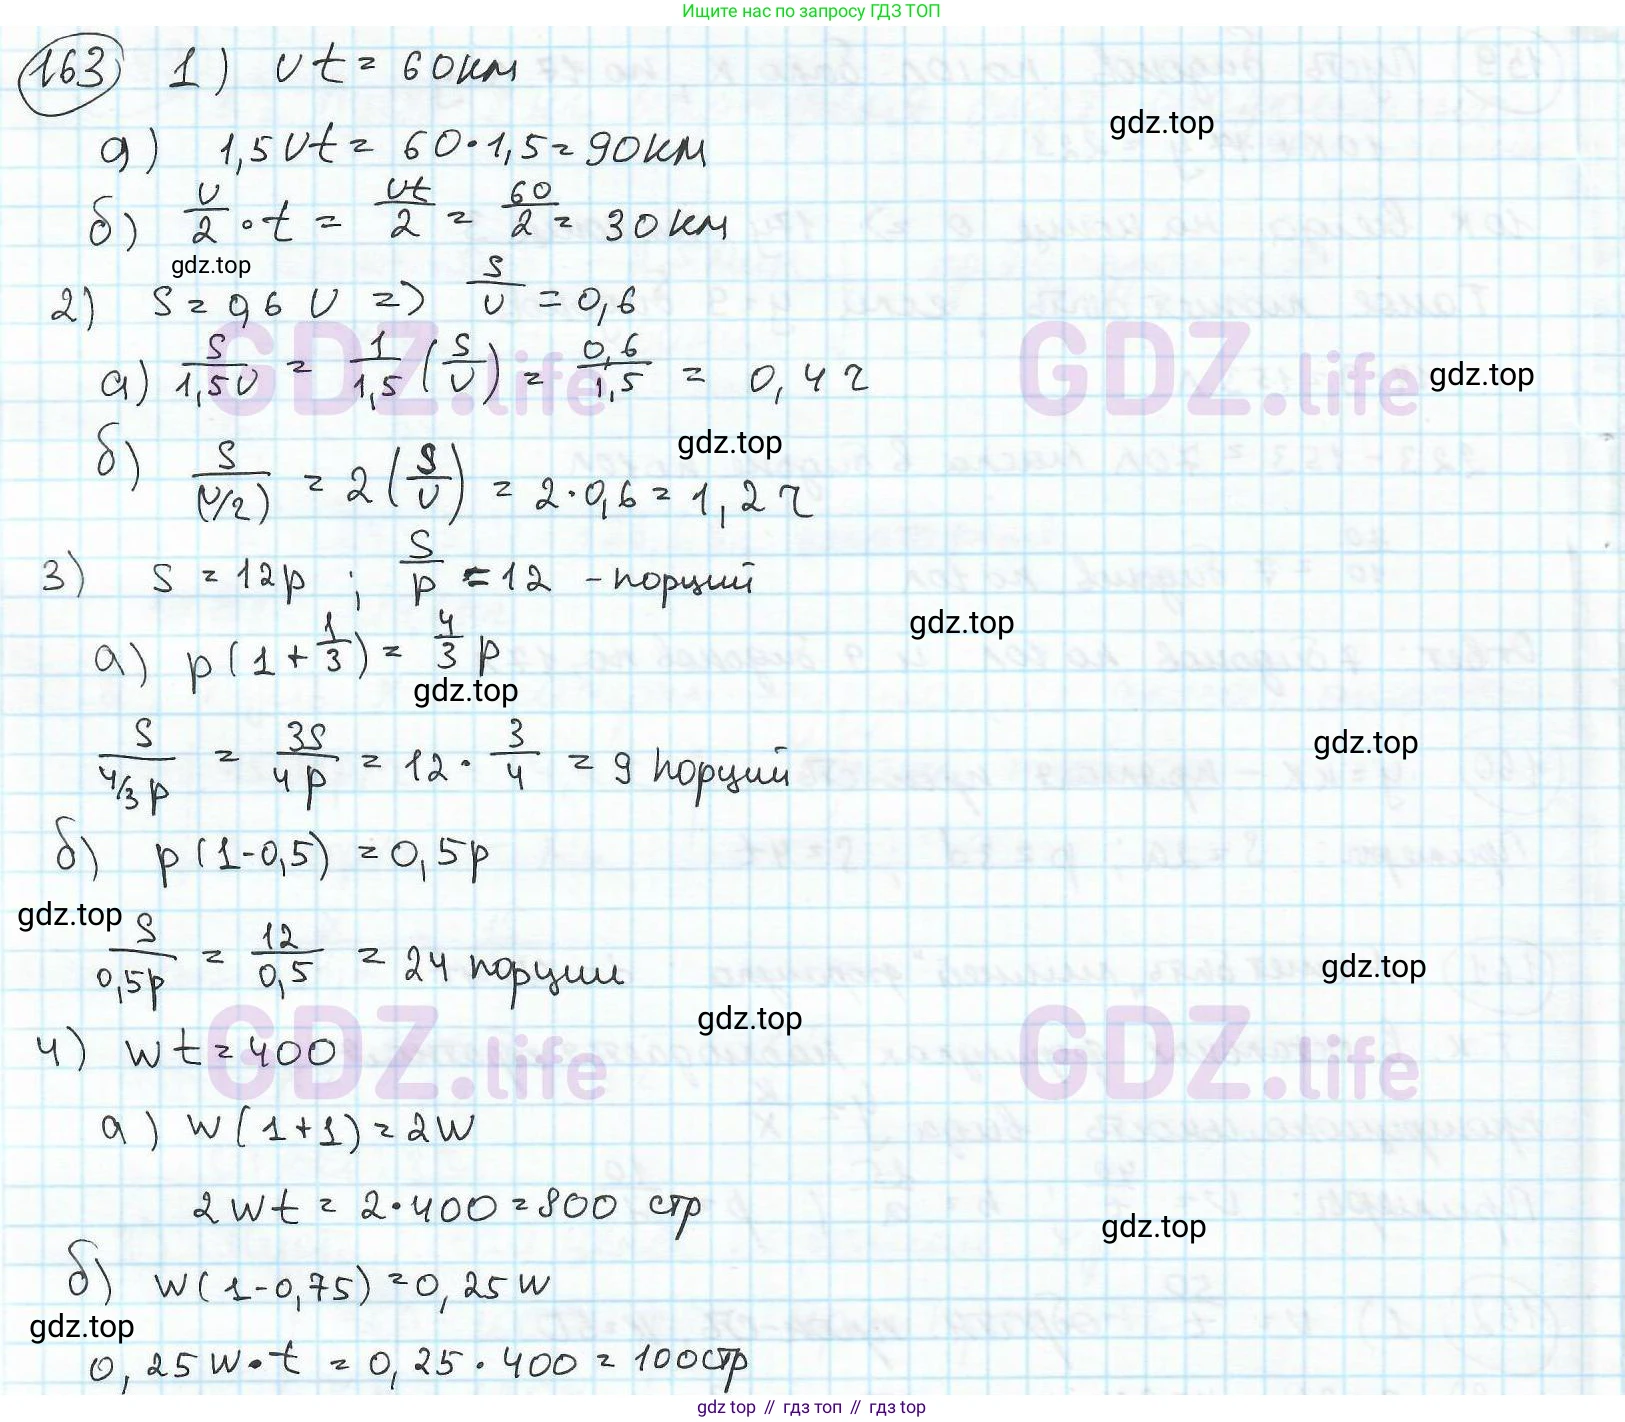 Ищите нас по запросу ГДЗ ТОП
163 1) vt = 60км
gdz.top
а) 1,5vt = 60·1,5 = 90км
б) v/2 · t = vt/2 = 60/2 = 30км
gdz.top
2) S = 0,6 v => S/v = 0,6
GDZ.life GDZ.life
а) S/1,5v = 1/1,5 (S/v) = 0,6/1,5 = 0,4 ч
gdz.top
gdz.top
б) S/(v/2) = 2 (S/v) = 2·0,6 = 1,2 ч
3) S = 12p ; S/p = 12 - порций
gdz.top
а) p(1+1/3) = 4/3 p
gdz.top
gdz.top
S/4/3p = 3S/4p = 12 · 3/4 = 9 порций
б) p(1-0,5) = 0,5p
gdz.top
S/0,5p = 12/0,5 = 24 порции
gdz.top
gdz.top
4) wt = 400
GDZ.life GDZ.life
а) w(1+1) = 2w
2wt = 2·400 = 800 стр
gdz.top
б) w(1-0,75) = 0,25w
gdz.top
0,25w·t = 0,25·400 = 100стр
gdz.top // гдз топ // гдз top